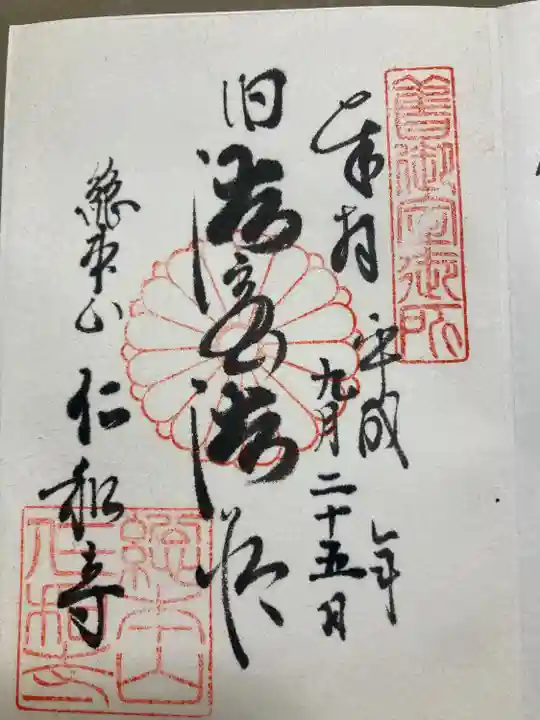 舊御室御所
奉拝 平成 年
九月二十五日
旧御室御所
総本山 仁和寺
総本山
仁和寺